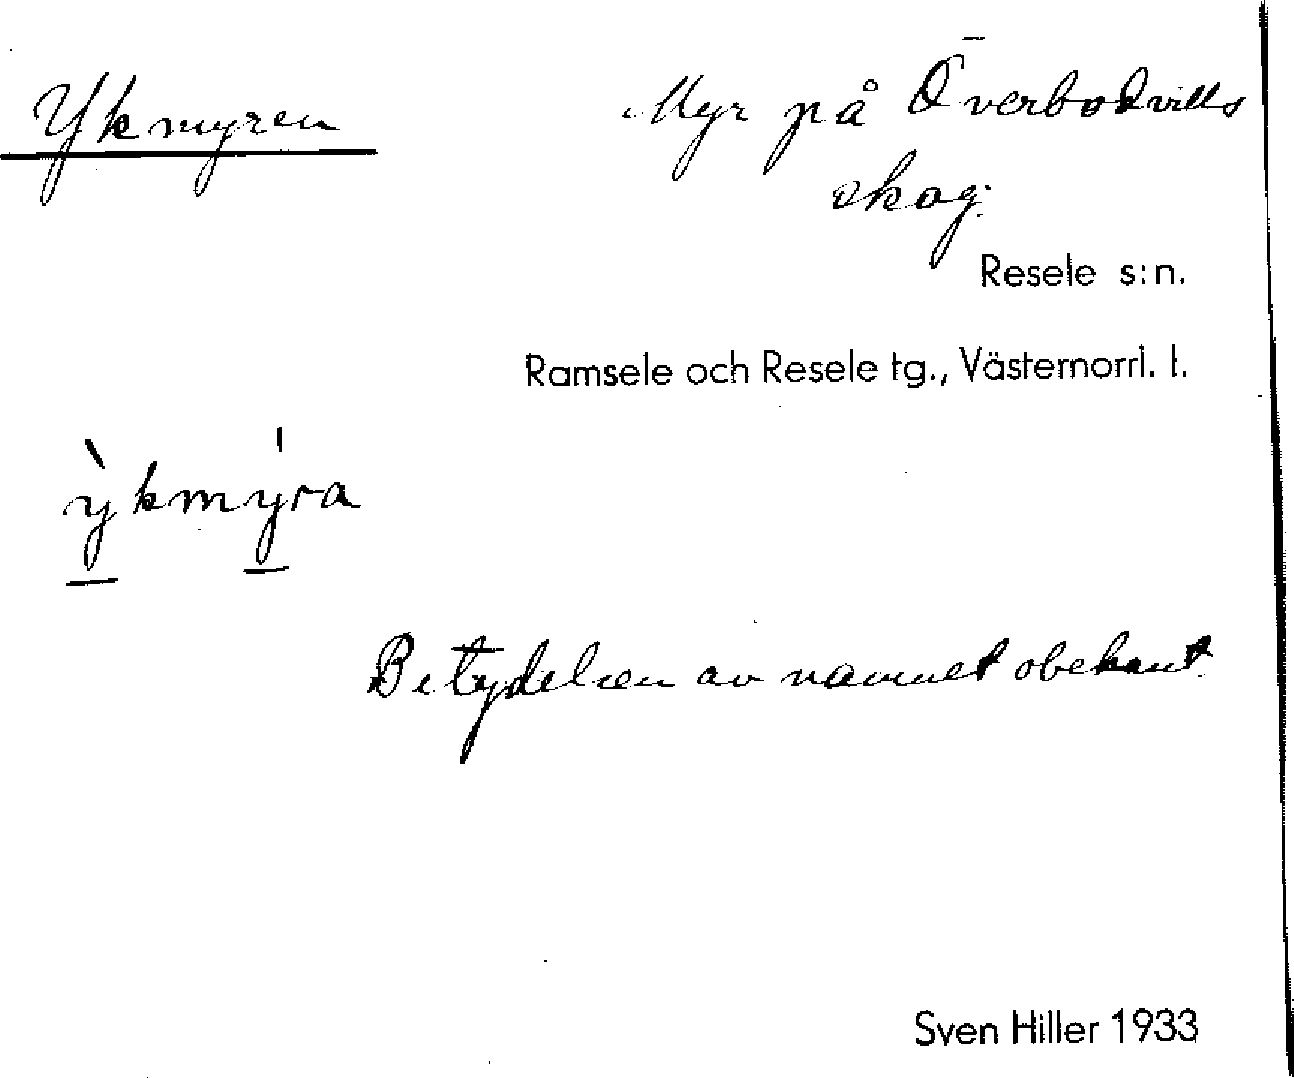 Ykmyren
Myr på Överbodvills
skog.
Resele s:n.
Ramsele och Resele tg., Västernorrl. l.
ỳkmy̍ra
Betydelsen av namnet obekant.
Sven Hiller 1933